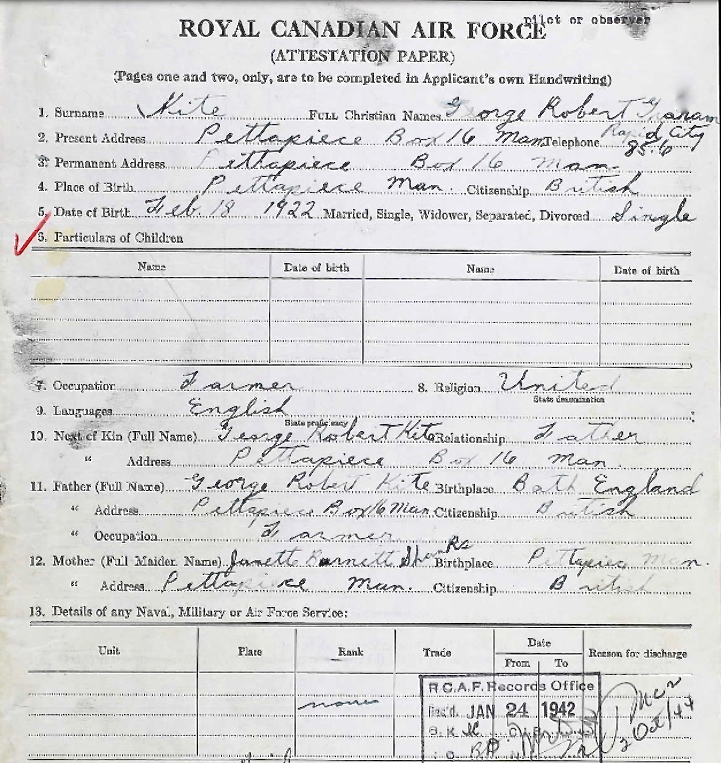 pilot or observer
ROYAL CANADIAN AIR FORCE
(ATTESTATION PAPER)
(Pages one and two, only, are to be completed in Applicant's own Handwriting)
1. Surname Kite FULL Christian Names George Robert Graham
2. Present Address Pettapiece Box 16 Man. Telephone Rapid City 85-6
3. Permanent Address Pettapiece Box 16 Man.
4. Place of Birth Pettapiece Man. Citizenship British
5. Date of Birth Feb. 18 1922 Married, Single, Widower, Separated, Divorced Single
6. Particulars of Children
Name Date of birth Name Date of birth
7. Occupation Farmer 8. Religion United
State denomination
9. Languages English
State proficiency
10. Next of Kin (Full Name) George Robert Kite Relationship Father
" Address Pettapiece Box 16 Man.
11. Father (Full Name) George Robert Kite Birthplace Bath England
" Address Pettapiece Box 16 Man Citizenship British
" Occupation Farmer
12. Mother (Full Maiden Name) Janett Burnett Shanks Birthplace Pettapiece Man.
" Address Pettapiece Man. Citizenship British
13. Details of any Naval, Military or Air Force Service:
Unit Place Rank Trade Date Reason for discharge
From To
none
R.C.A.F. Records Office
Rec'd. JAN 24 1942
2 Oct/44